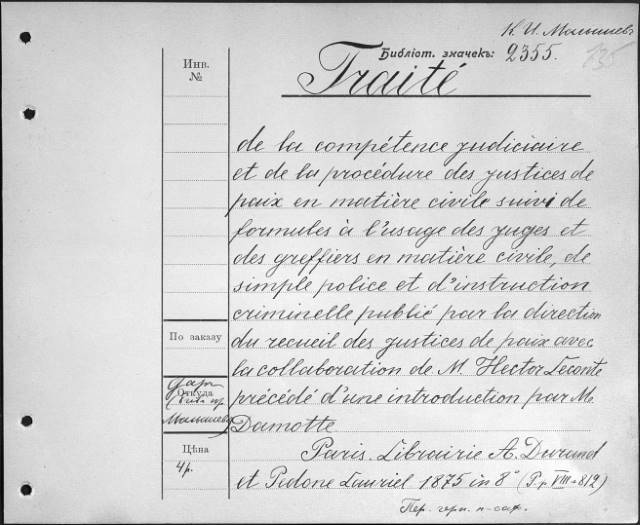 К. И. Малышевъ
Библіот. значекъ: 2355.
135
Инв.
№
Traité
de la compétence judiciaire
et de la procédure des justices de
paix en matière civile suivi de
formules à l'usage des juges et
des greffiers en matière civile, de
simple police et d'instruction
criminelle publié par la direction
du recueil des justices de paix avec
la collaboration de M. Hector Leconte
précédé d'une introduction par M.
Damotte
Paris. Librairie A. Durand
et Pedone Lauriel 1875 in 8° (P. p. VIII + 812)
По заказу
Даръ
Откуда
Малышева
Цѣна
4р.
Пер.